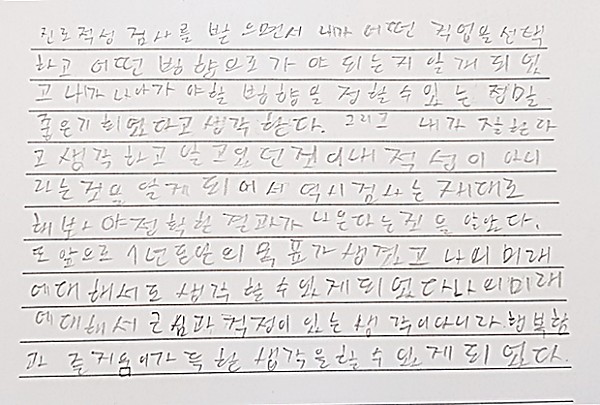 진로적성 검사를 받으면서 내가 어떤 직업을 선택
하고 어떤 방향으로 가야 되는지 알게 되었
고 내가 나아가야할 방향을 정할 수 있는 정말
좋은기회였다고 생각한다. 그리고 내가 잘한다
고 생각하고 알고있던것이 내 적성이 아니
라는 것을 알게 되어서 역시 검사는 제대로
해봐야 정확한 결과가 나온다는것을 알았다.
또 앞으로 1년동안의 목표가 생겼고 나의 미래
에대해서도 생각할 수 있게되었다 나의미래
에대해서 근심과 걱정이 있는 생각이아니라 행복함
과 즐거움이가득한 생각을할 수 있게 되었다.